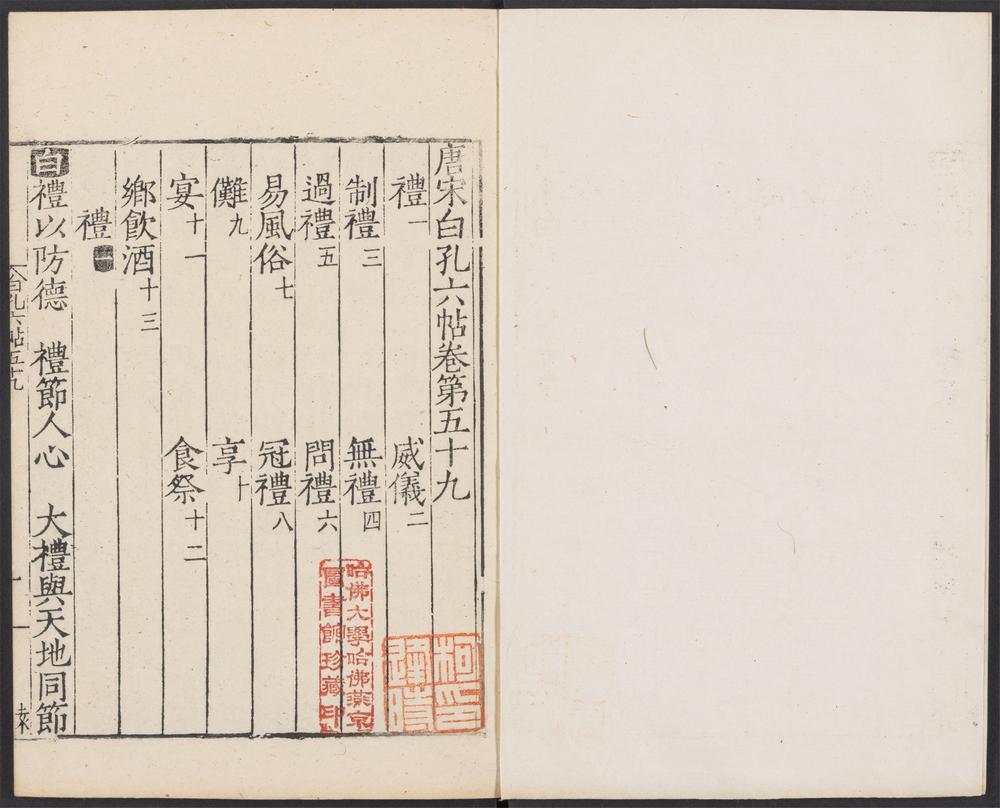 唐宋白孔六帖卷第五十九
禮一 威儀二
制禮三 無禮四
過禮五 問禮六
易風俗七 冠禮八
儺九 享十
宴十一 食祭十二
鄉飲酒十三
禮
白 禮以防德 禮節人心 大禮與天地同節
白孔六帖五十九
哈佛大學哈佛燕京
圖書館珍藏印